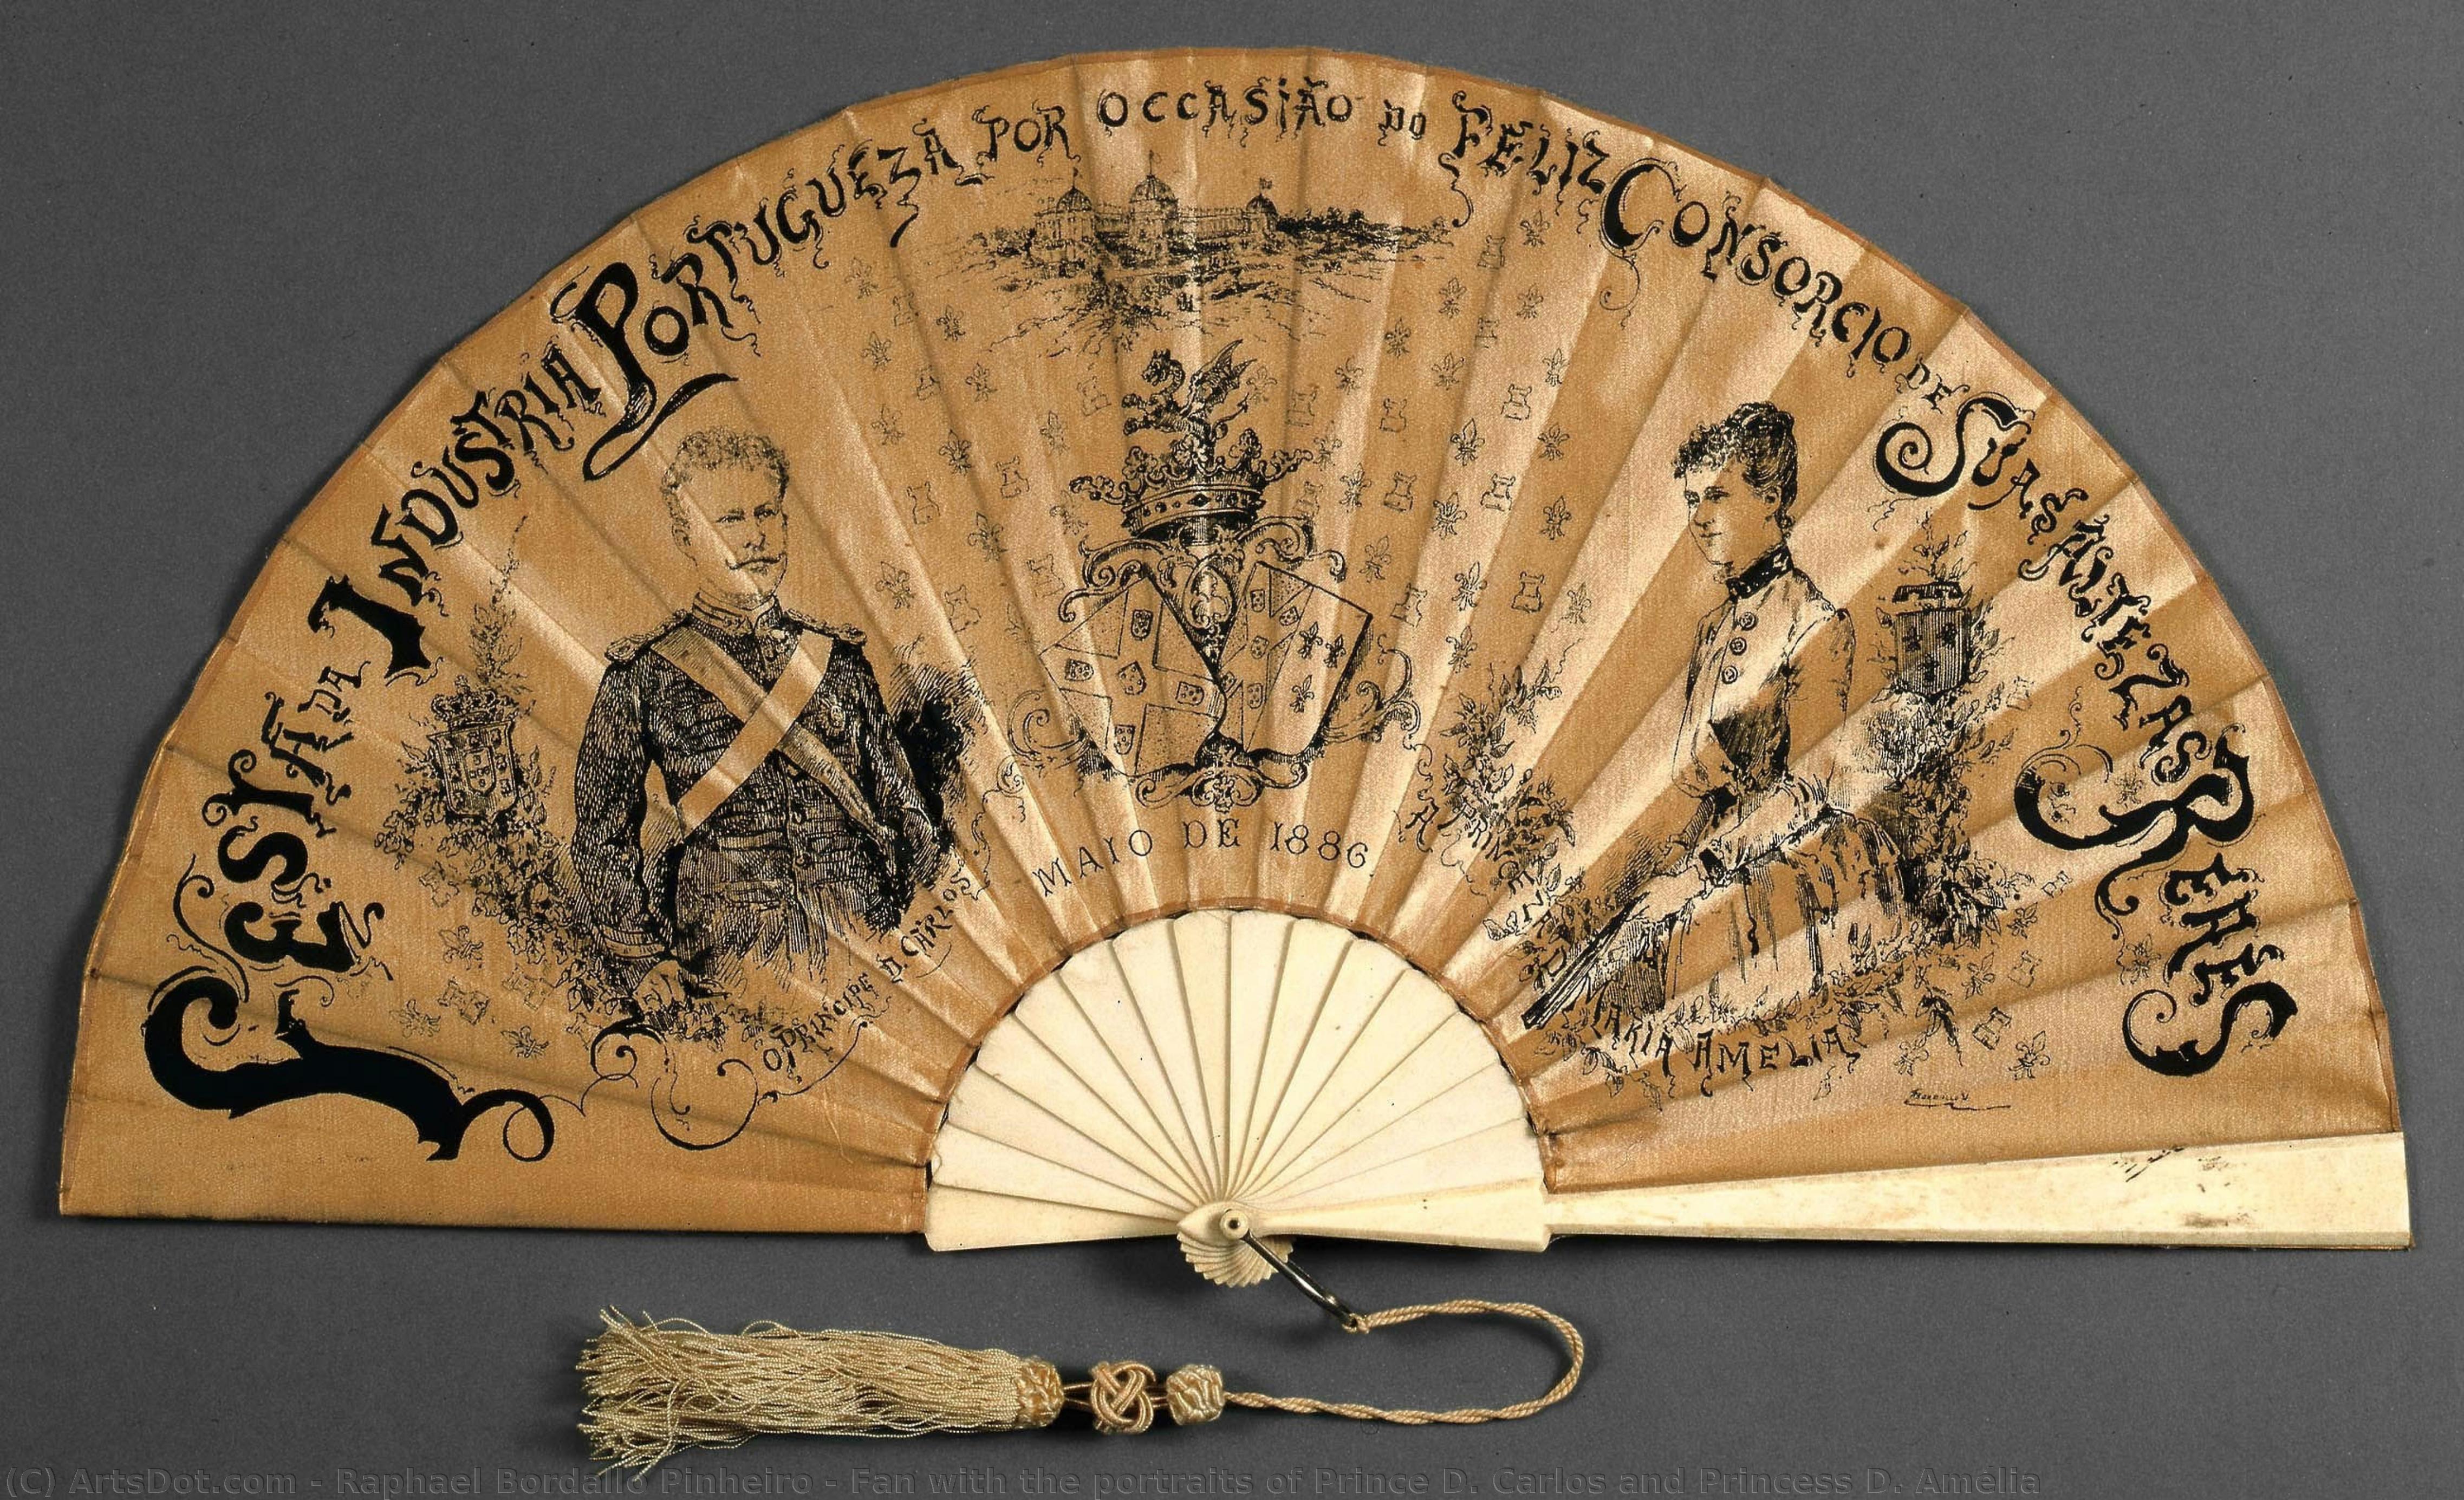 FESTA DA INDUSTRIA PORTUGUEZA POR OCCASIÃO DO FELIZ CONSORCIO DE SUAS ALTEZAS REAES
O PRINCIPE D. CARLOS
MAIO DE 1886
A PRINCEZA D. MARIA AMELIA
(C) ArtsDot.com - Raphael Bordallo Pinheiro - Fan with the portraits of Prince D. Carlos and Princess D. Amélia